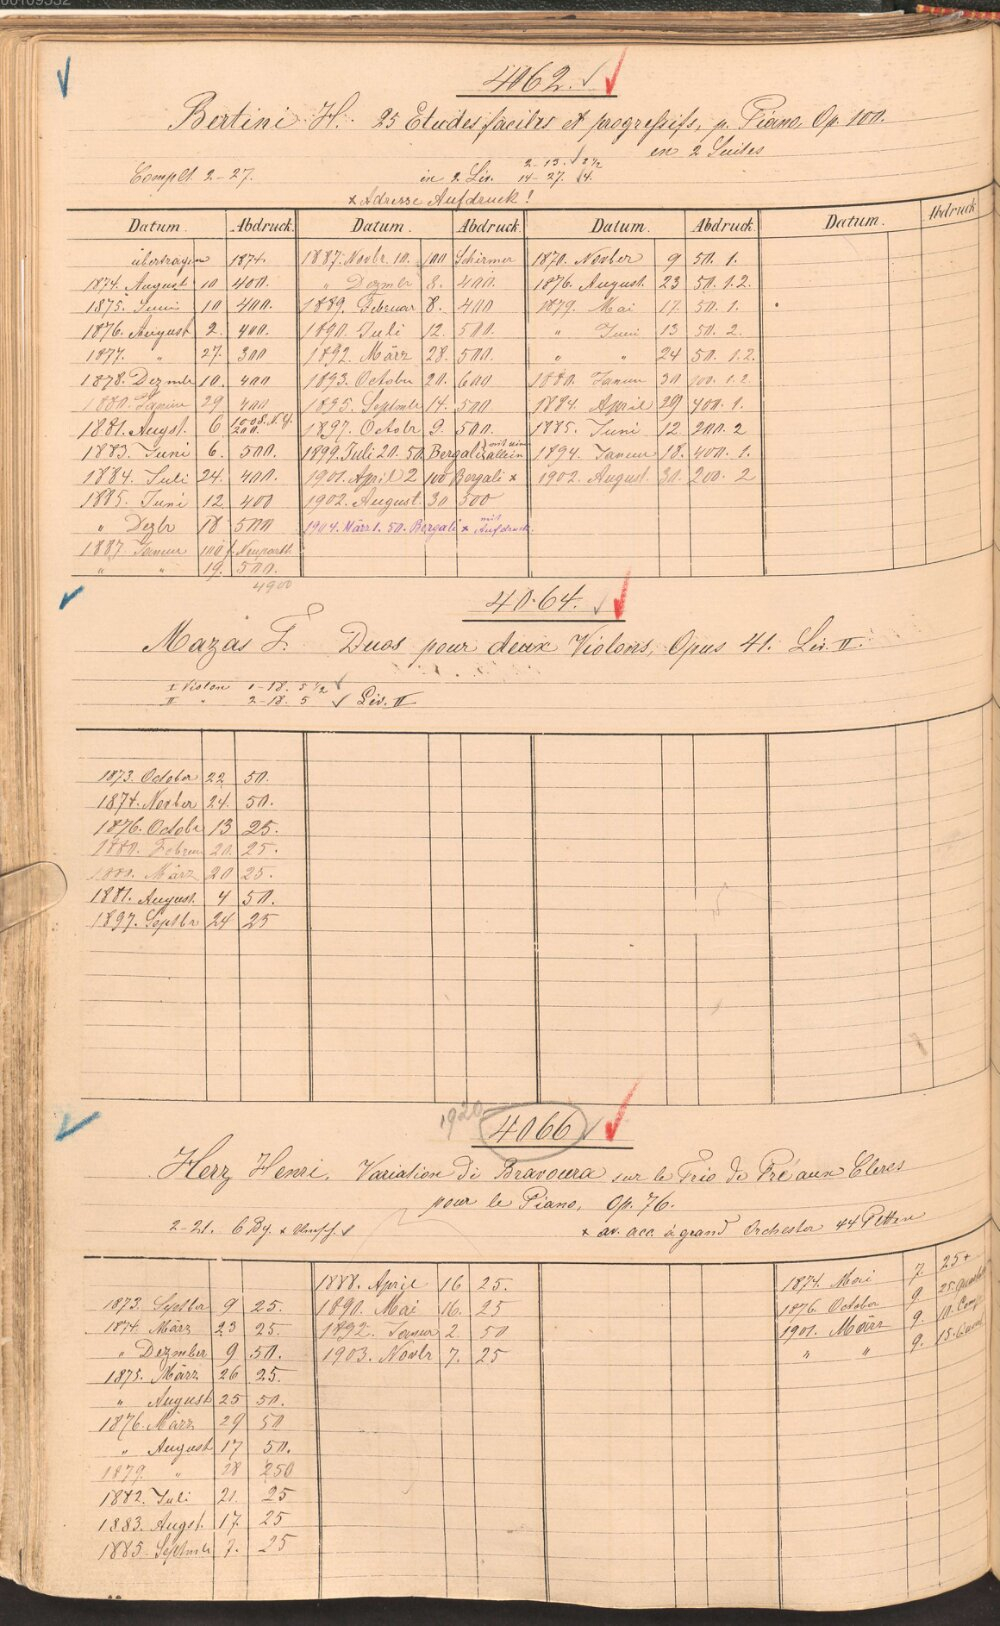 4062.
Bertini H. 25 Etudes faciles et progressifs, p. Piano, Op. 100.
en 2 Suites
Complt 2-27. in 2 Liv. 2-13. 2 1/2
14-27. 4.
x Adresse Aufdruck!
Datum. Abdruck. Datum. Abdruck. Datum. Abdruck. Datum. Abdruck.
übertragen 1874. 1887. Novbr. 10. 100 Schirmer 1870. Novber 9 50. 1.
1874. August 10 400. " Dezmbr 8. 400. 1876. August. 23 50. 1.2.
1875. Juni 10 400. 1889. Februar 8. 400 1879. Mai 17. 50. 1.
1876. August 2. 400. 1890. Juli 12. 500. " Juni 13 50. 2.
1877. " 27. 300 1892. März 28. 500. " " 24 50. 1.2.
1878. Dezmbr 10. 400 1893. October 20. 600 1880. Januar 30 100. 1.2.
1880. Januar 29 400 1895. Septmbr 14. 500 1884. April 29 400. 1.
1881. Augst. 6 200. 1897. Octobr 9. 500. 1885. Juni 12 200. 2
1883. Juni 6. 500. 1899. Juli 20. 50. Bergali allein 1894. Januar 18. 400. 1.
1884. Juli 24. 400. 1901. April 2 100 Bergali x 1902. August. 30. 200. 2
1885. Juni 12 400 1902. August. 30 500
" Dezbr 18. 500 1904. März 1. 50. Bergali x mit Aufdruck.
1887. Januar 100
" " 19. 500.
4900
4064.
Mazas F. Duos pour deux Violons, Opus 41. Liv. II.
I Violon 1-18. 5 1/2
II " 2-18. 5 Liv. II
1873. October 22 50.
1874. Novber 24. 50.
1876. Octobr 13 25.
1880. Februar 20. 25.
1880. März 20 25.
1881. August. 4 50.
1897. Septbr 24 25
1920
4066
Herz Henri. Variation di Bravoura sur le Trio du Pré aux Clercs
pour le Piano, Op. 76.
2-21. 6 Bg. x av. acc. à grand Orchester 44 Platten
1888. April 16 25. 1874. Mai 7. 25 +
1873. Septbr 9 25. 1890. Mai 16. 25 1876. October 9 25.
1874. März 23 25. 1892. Januar 2. 50 1901. März 9. 10.
" Dezmber 9 50. 1903. Novbr 7. 25 " " 9. 15.
1875. März 26 25.
" August 25 50.
1876. März 29 50
" August 17 50.
1879. " 28 250
1882. Juli 21. 25
1883. Augst. 17. 25
1885. Septmbr 7. 25